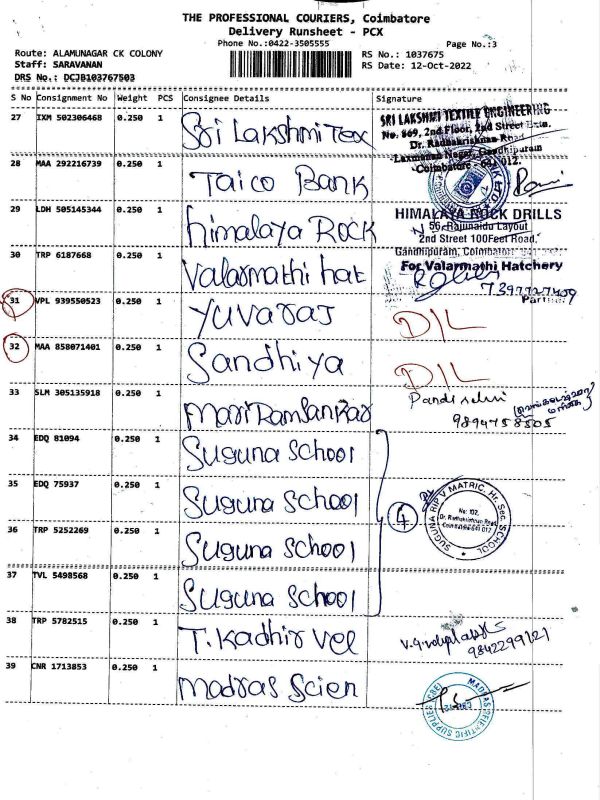 THE PROFESSIONAL COURIERS, Coimbatore
Delivery Runsheet - PCX
Phone No.:0422-3505555
Page No.:3
Route: ALAMUNAGAR CK COLONY
RS No.: 1037675
Staff: SARAVANAN
RS Date: 12-Oct-2022
DRS No.: DCJB103767503
S No Consignment No Weight PCS Consignee Details Signature
27 IXM 502306468 0.250 1 Sri Lakshmi Tex
SRI LAKSHMI TEXTILE ENGINEERING
No. 869, 2nd Floor, 2nd Street Extn.
Dr. Radhakrishnan Road
Laxmanan Nagar, Gandhipuram
Coimbatore - 012.
28 MAA 292216739 0.250 1 Taico Bank
29 LDH 505145344 0.250 1 Himalaya Rock
HIMALAYA ROCK DRILLS
56, Rajunaidu Layout
2nd Street 100Feet Road,
Gandhipuram, Coimbatore
30 TRP 6187668 0.250 1 Valarmathi hat
For Valarmathi Hatchery
7397727409
Partner
31 VPL 939550523 0.250 1 Yuvaraj D/L
32 MAA 858071401 0.250 1 Sandhiya D/L
33 SLM 305135918 0.250 1 MariRamSankar
Pandi selvi
9894758505
34 EDQ 81094 0.250 1 Suguna School
35 EDQ 75937 0.250 1 Suguna School
4
SUGUNA RIP V MATRIC. Hr. Sec. SCHOOL
No: 102,
Dr. Radhakrishnan Road,
Coimbatore-641 012
36 TRP 5252269 0.250 1 Suguna School
37 TVL 5498568 0.250 1 Suguna School
38 TRP 5782515 0.250 1 T. Kadhir Vel
9842299121
39 CNR 1713853 0.250 1 Madras Scien
MADRAS SCIENTIFIC SUPPLIES (CBE)
CBE-12